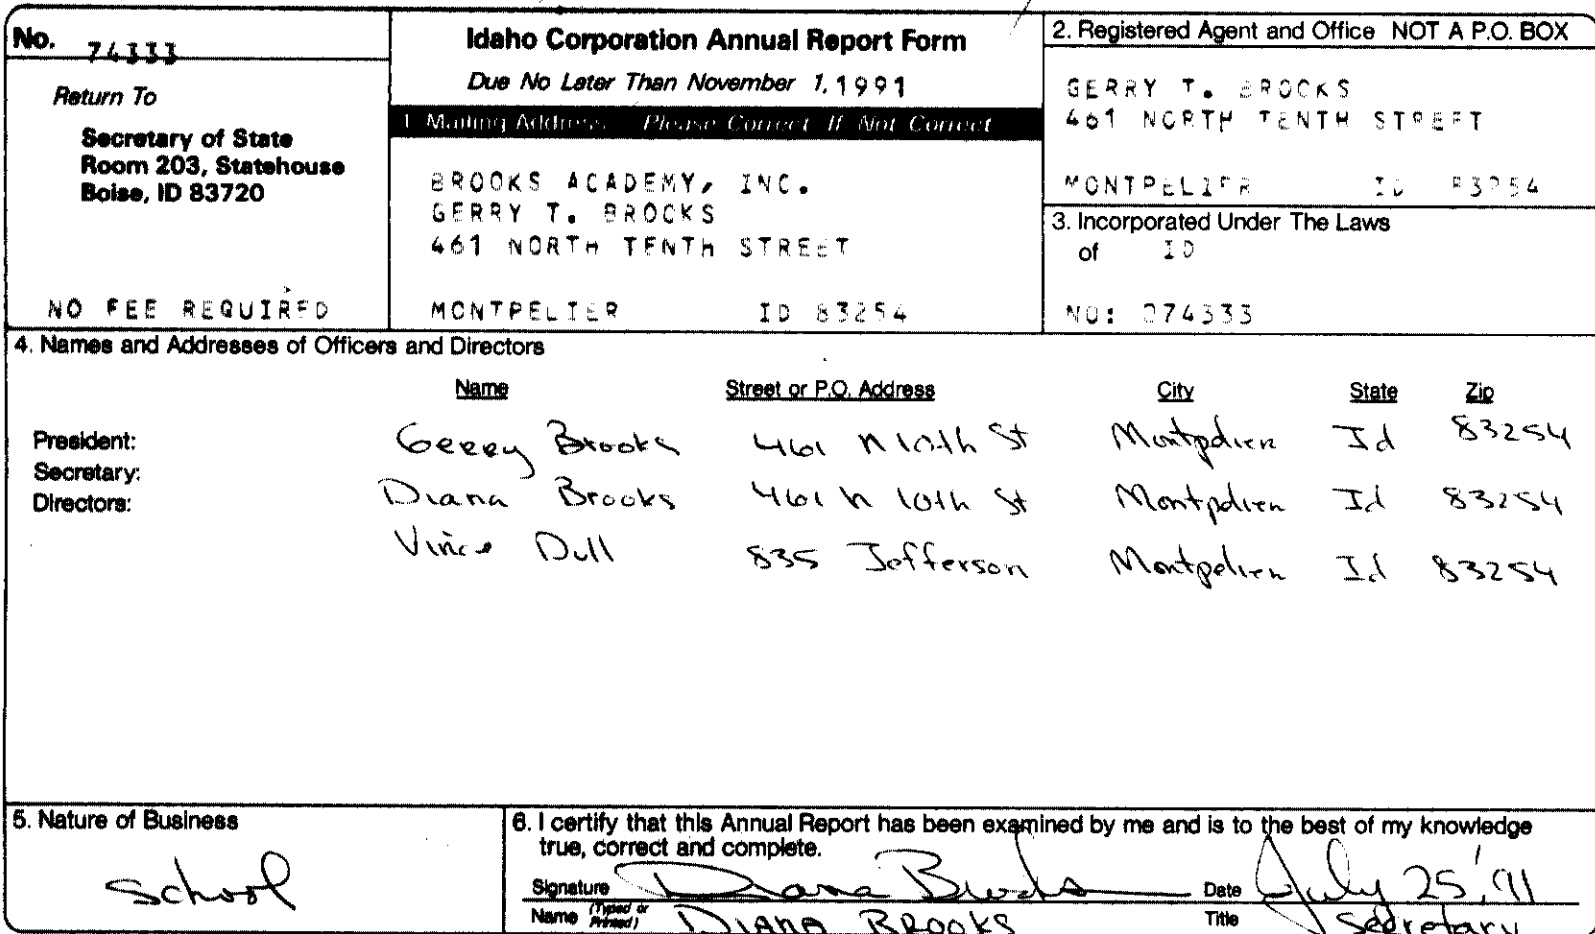 No. 74333
Return To
Secretary of State
Room 203, Statehouse
Boise, ID 83720
NO FEE REQUIRED
Idaho Corporation Annual Report Form
Due No Later Than November 1, 1991
1. Mailing Address Please Correct If Not Correct
BROOKS ACADEMY, INC.
GERRY T. BROOKS
461 NORTH TENTH STREET
MONTPELIER ID 83254
2. Registered Agent and Office NOT A P.O. BOX
GERRY T. BROCKS
461 NORTH TENTH STREET
MONTPELIER ID 83254
3. Incorporated Under The Laws
of ID
NO: 074333
4. Names and Addresses of Officers and Directors
Name Street or P.O. Address City State Zip
President: Gerry Brooks 461 N 10th St Montpelier Id 83254
Secretary:
Directors: Diana Brooks 461 N 10th St Montpelier Id 83254
Vince Dull 835 Jefferson Montpelier Id 83254
5. Nature of Business
School
6. I certify that this Annual Report has been examined by me and is to the best of my knowledge
true, correct and complete.
Signature Diana Brooks Date July 25, '91
Name (Typed or Printed) DIANA BROOKS Title Secretary